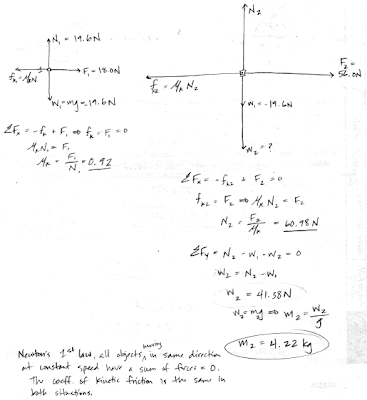 N₁ = 19.6N
f_k = μ_kN
F₁ = 18.0N
W₁ = mg = -19.6N
ΣFx = -f_k + F₁ ⇒ f_k = F₁ = 0
μ_k N₁ = F₁
μ_k = F₁/N₁ = 0.92
N₂
f_k2 = μ_k N₂
F₂ =
56.0N
W₁ = -19.6N
W₂ = ?
ΣFx = -f_k2 + F₂ = 0
f_k2 = F₂ ⇒ μ_k N₂ = F₂
N₂ = F₂/μ_k = 60.98N
ΣFy = N₂ - W₁ - W₂ = 0
W₂ = N₂ - W₁
W₂ = 41.38N
W₂ = m₂g ⇒ m₂ = W₂/g
m₂ = 4.22 kg
Newton's 1st law, all objects moving in same direction
at constant speed have a sum of forces = 0.
The coeff. of kinetic friction is the same in
both situations.